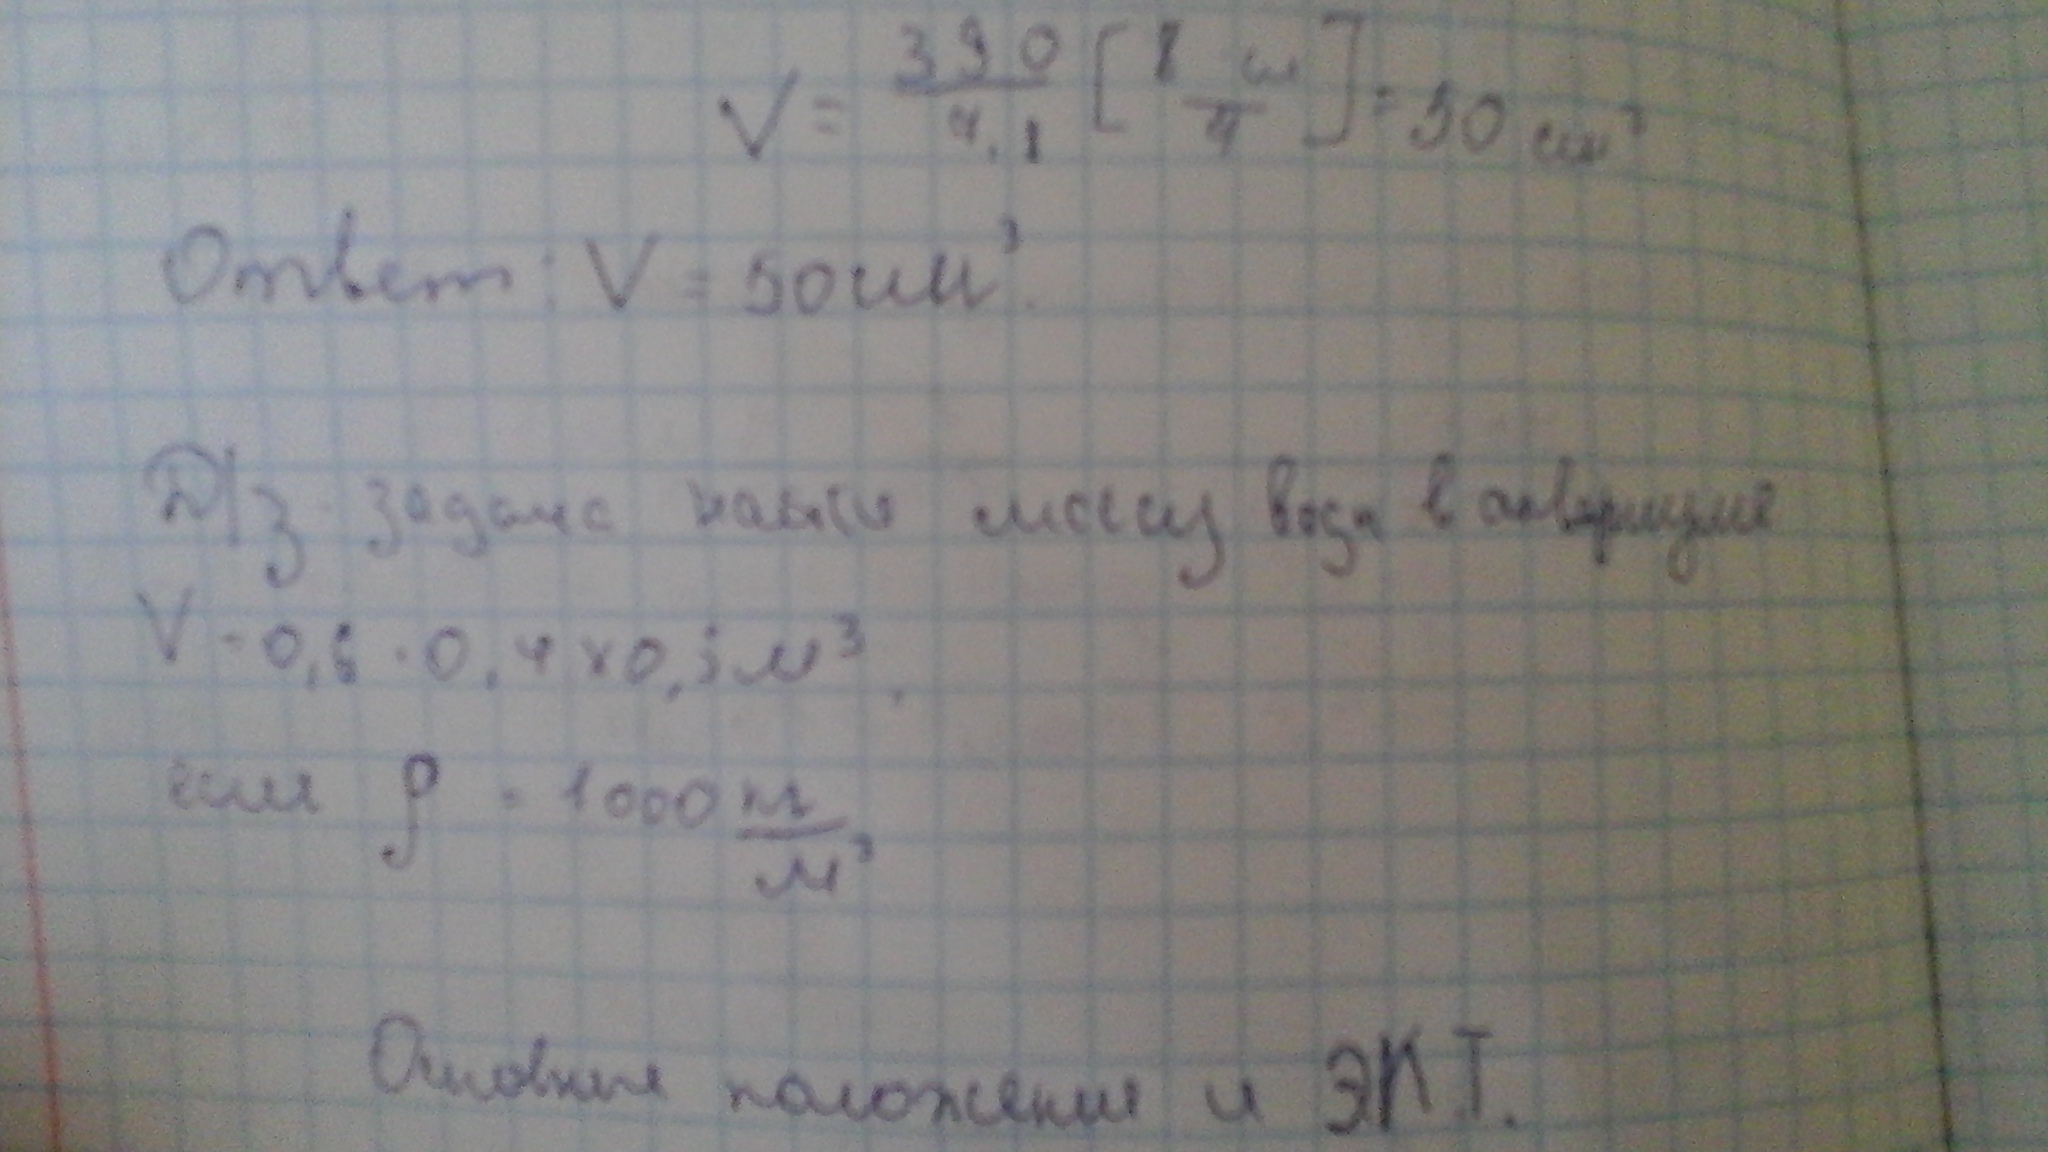 V = 390/7.8 [г · см³/г] = 50 см³
Ответ: V = 50 см³.
Д/з. Задача найти массу воды в аквариуме
V = 0,6 · 0,4 х 0,3 м³.
если ρ = 1000 кг/м³
Основные положения и